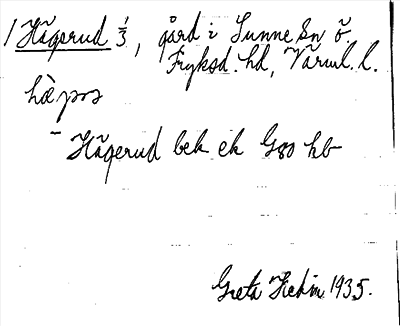 1 Hägerud 1/3, gård i Sunne sn ö.
Fryksd. hd, Värml. l.
hä̀ pos
- Hägerud bek ek G80 hb
Greta 1935.